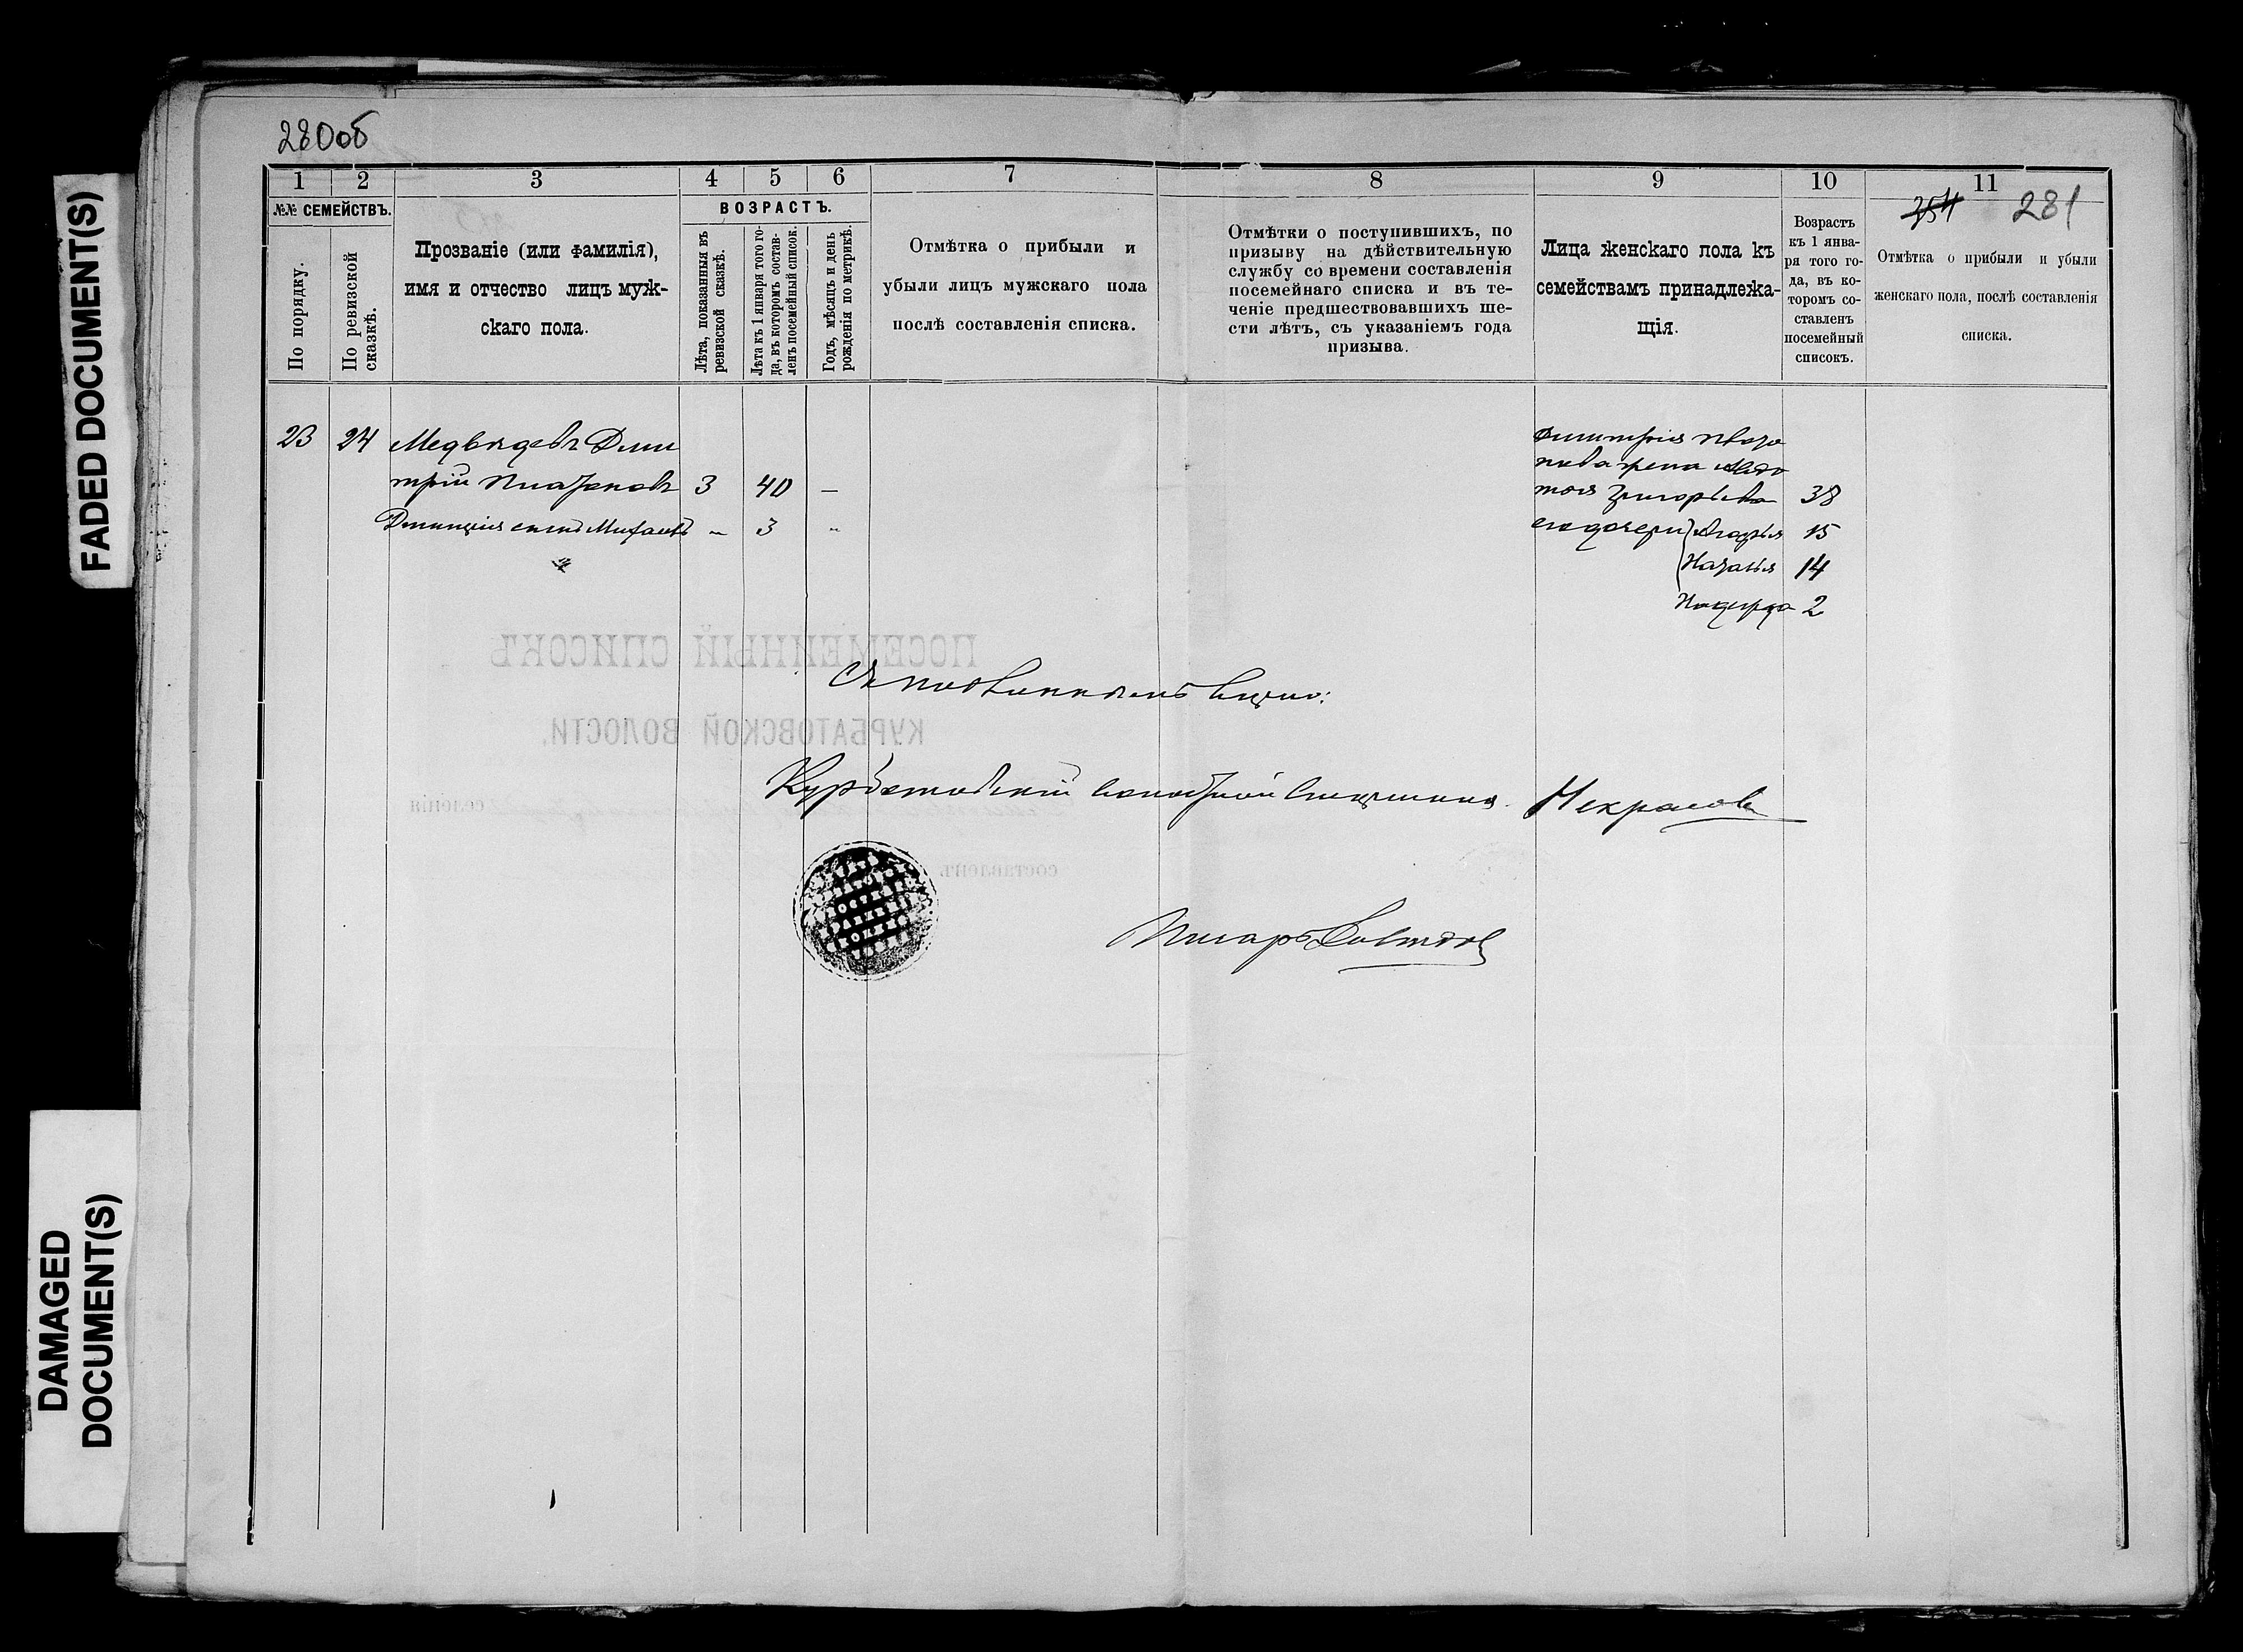 280об
1 2 3 4 5 6 7 8 9 10 11
354 281
№№ СЕМЕЙСТВЪ.
По порядку.
По ревизской сказкѣ.
Прозваніе (или фамилія),
имя и отчество лицъ муж-
скаго пола.
ВОЗРАСТЪ.
Лѣта, показанныя въ
ревизской сказкѣ.
Лѣта къ 1 января того го-
да, въ которомъ состав-
ленъ посемейный списокъ.
Годъ, мѣсяцъ и день
рожденія по метрикѣ.
Отмѣтка о прибыли и
убыли лицъ мужскаго пола
послѣ составленія списка.
Отмѣтки о поступившихъ, по
призыву на дѣйствительную
службу со времени составленія
посемейнаго списка и въ те-
ченіе предшествовавшихъ ше-
сти лѣтъ, съ указаніемъ года
призыва.
Лица женскаго пола къ
семействамъ принадлежа-
щія.
Возрастъ
къ 1 янва-
ря того го-
да, въ ко-
торомъ со-
ставленъ
посемейный
списокъ.
Отмѣтка о прибыли и убыли
женскаго пола, послѣ составленія
списка.
23 24 Медвѣдевъ Дми
трій 3 40 —
Дмитрія сынъ - 3 "
Дмитрія
жена Авдо
тья Григорьева 38
его дочери 15
Наталья 14
2
Съ подлиннымъ вѣрно:
Курбатовскій волостной старшина Некрасовъ
Писарь
ПОСЕМЕЙНЫЙ СПИСОКЪ
КУРБАТОВСКОЙ ВОЛОСТИ.
селенія
составленъ
FADED DOCUMENT(S)
DAMAGED
DOCUMENT(S)